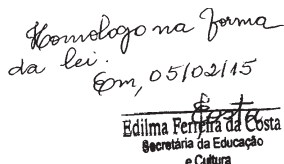 Homologo na forma
da lei.
Em, 05/02/15
Costa
Edilma Ferreira da Costa
Secretária da Educação
e Cultura